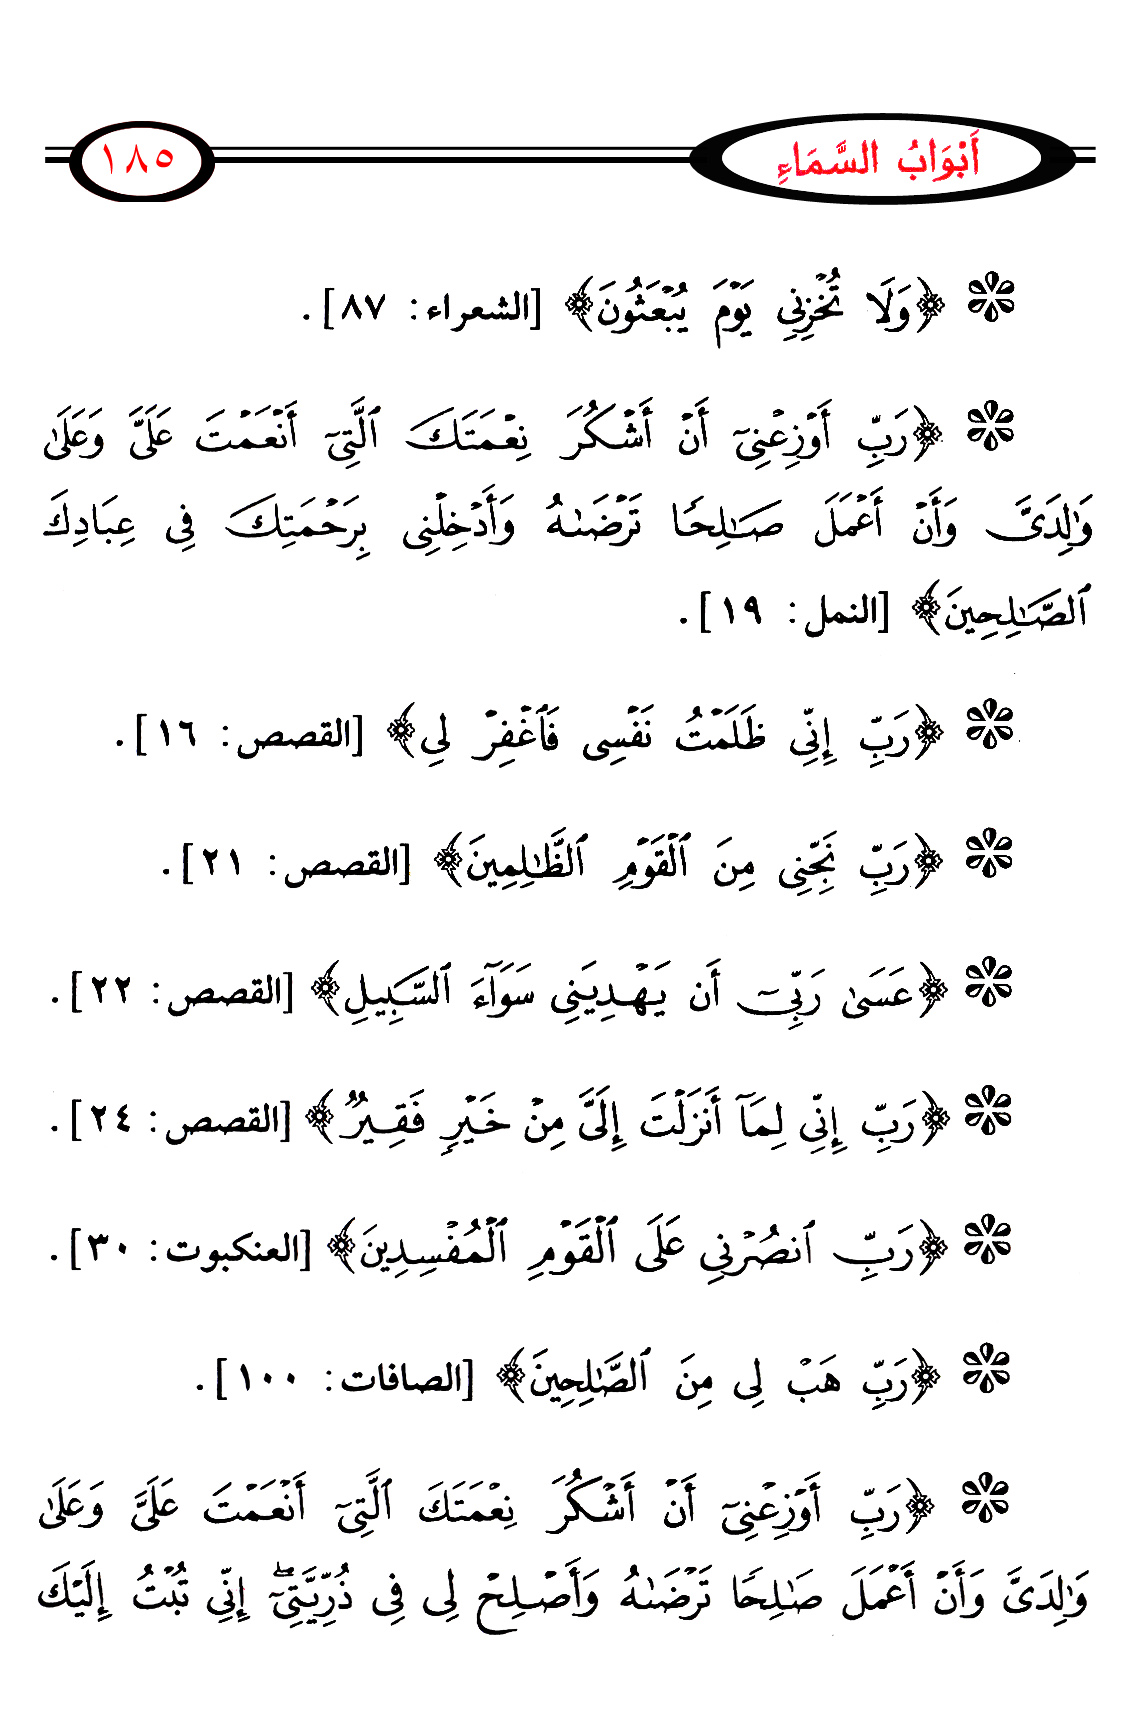 أَبْوَابُ السَّمَاءِ ١٨٥
﴿وَلَا تُخْزِنِي يَوْمَ يُبْعَثُونَ﴾ [الشعراء: ٨٧].
﴿رَبِّ أَوْزِعْنِىٓ أَنْ أَشْكُرَ نِعْمَتَكَ ٱلَّتِىٓ أَنْعَمْتَ عَلَىَّ وَعَلَىٰ
وَٰلِدَىَّ وَأَنْ أَعْمَلَ صَٰلِحًا تَرْضَىٰهُ وَأَدْخِلْنِى بِرَحْمَتِكَ فِى عِبَادِكَ
ٱلصَّٰلِحِينَ﴾ [النمل: ١٩].
﴿رَبِّ إِنِّى ظَلَمْتُ نَفْسِى فَٱغْفِرْ لِى﴾ [القصص: ١٦].
﴿رَبِّ نَجِّنِى مِنَ ٱلْقَوْمِ ٱلظَّٰلِمِينَ﴾ [القصص: ٢١].
﴿عَسَىٰ رَبِّىٓ أَن يَهْدِيَنِى سَوَآءَ ٱلسَّبِيلِ﴾ [القصص: ٢٢].
﴿رَبِّ إِنِّى لِمَآ أَنزَلْتَ إِلَىَّ مِنْ خَيْرٍ فَقِيرٌ﴾ [القصص: ٢٤].
﴿رَبِّ ٱنصُرْنِى عَلَى ٱلْقَوْمِ ٱلْمُفْسِدِينَ﴾ [العنكبوت: ٣٠].
﴿رَبِّ هَبْ لِى مِنَ ٱلصَّٰلِحِينَ﴾ [الصافات: ١٠٠].
﴿رَبِّ أَوْزِعْنِىٓ أَنْ أَشْكُرَ نِعْمَتَكَ ٱلَّتِىٓ أَنْعَمْتَ عَلَىَّ وَعَلَىٰ
وَٰلِدَىَّ وَأَنْ أَعْمَلَ صَٰلِحًا تَرْضَىٰهُ وَأَصْلِحْ لِى فِى ذُرِّيَّتِىٓ ۖ إِنِّى تُبْتُ إِلَيْكَ